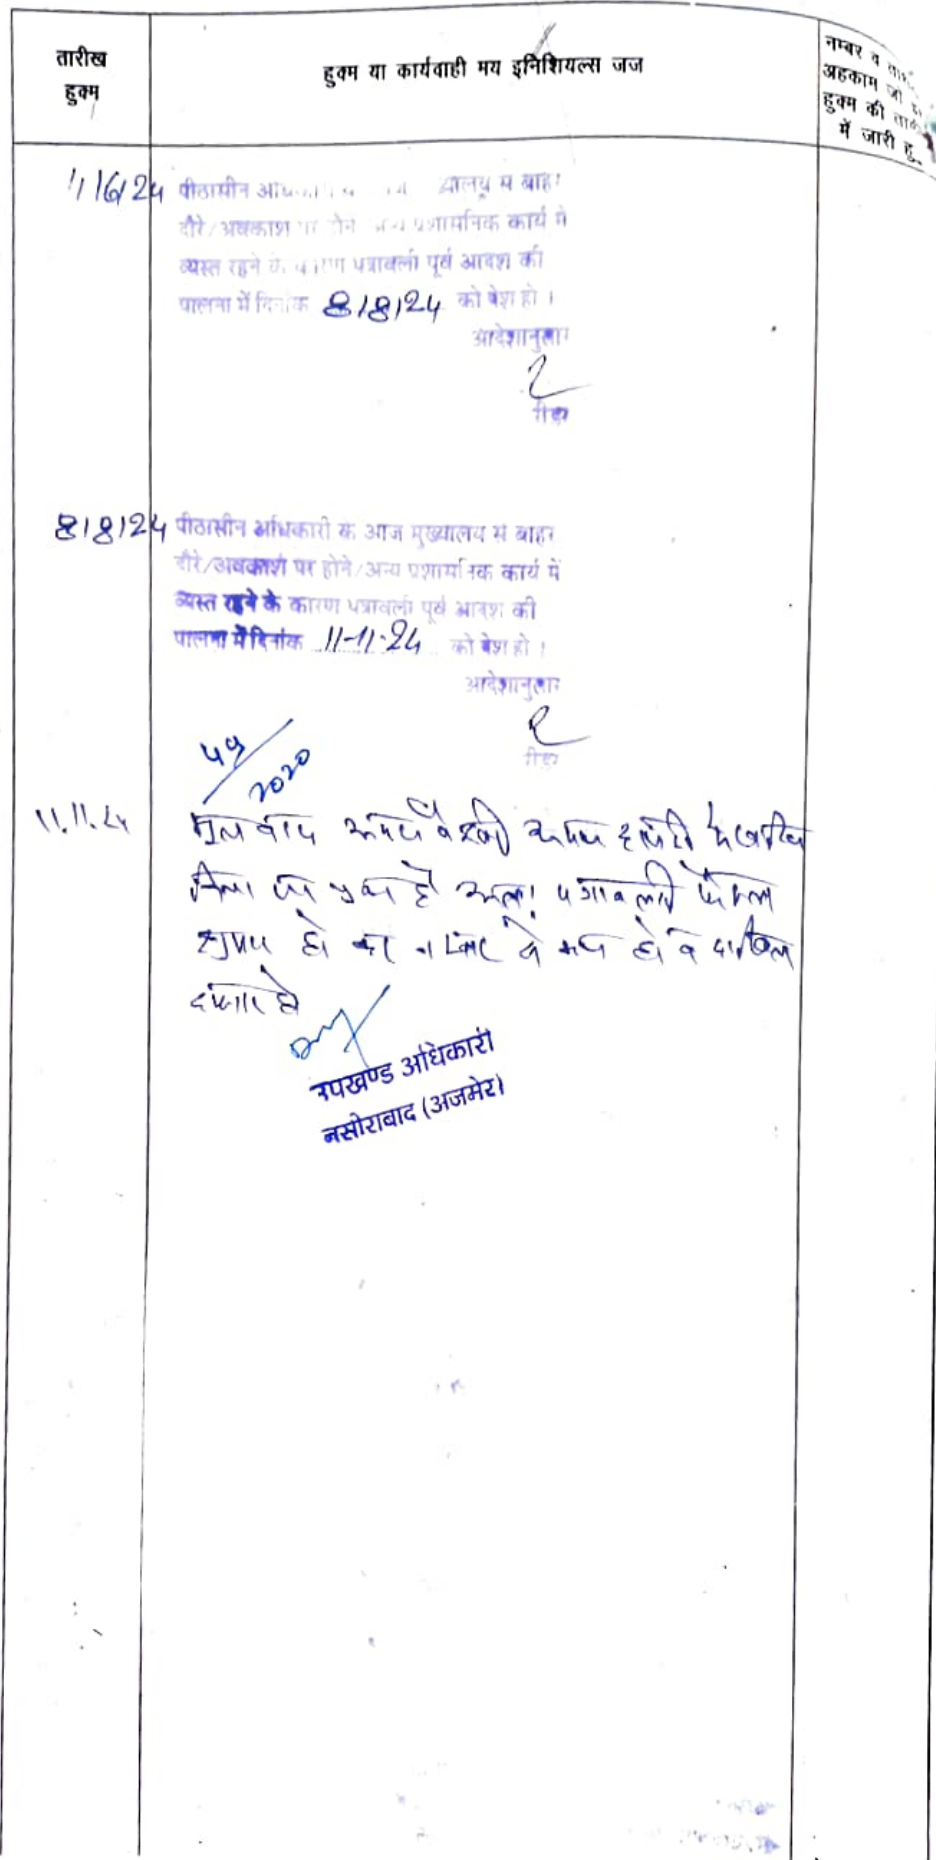 तारीख
हुक्म
हुक्म या कार्यवाही मय इनिशियल्स जज
नम्बर व
अहकाम जो
हुक्म की
में जारी
1/6/24 पीठासीन बाहर
दौरे/अवकाश पर होने अन्य प्रशासनिक कार्य में
व्यस्त रहने के कारण पत्रावली पूर्व आदेश की
पालना में दिनांक 8/8/24 को पेश हो ।
आदेशानुसार
रीडर
8/8/24 पीठासीन अधिकारी के आज मुख्यालय से बाहर
दौरे/अवकाश पर होने/अन्य प्रशासनिक कार्य में
व्यस्त रहने के कारण पत्रावली पूर्व आदेश की
पालना में दिनांक 11-11-24 को पेश हो ।
आदेशानुसार
रीडर
2020
11.11.24 मूल वाद
चुका है अतः पत्रावली फैसल
शुमार हो कर नम्बर से कम हो व दाखिल
दफ्तर हो
उपखण्ड अधिकारी
नसीराबाद (अजमेर)